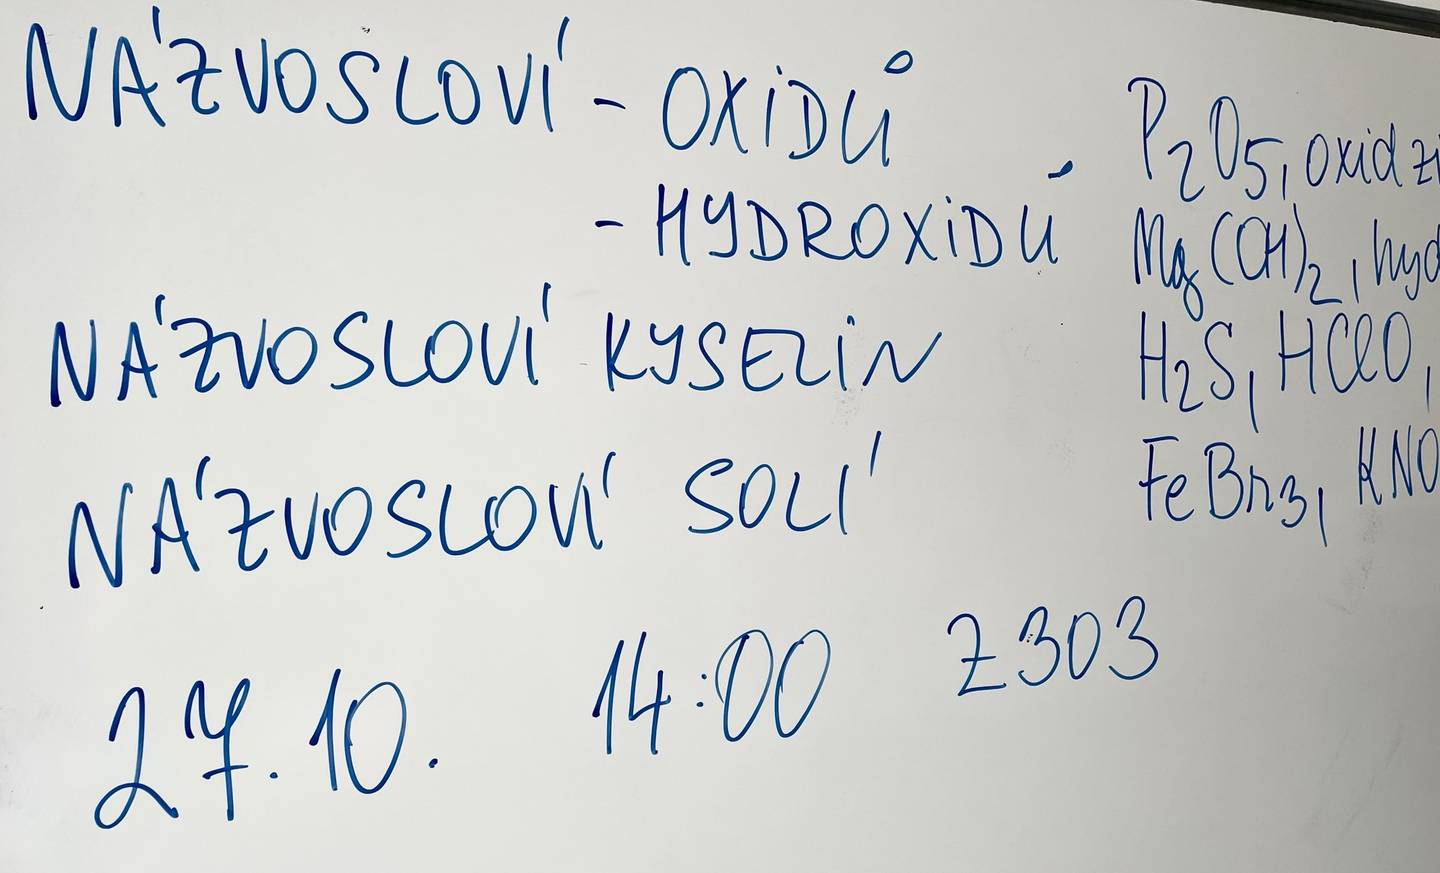 NÁZVOSLOVÍ - OXIDŮ P₂O₅, oxid zi
- HYDROXIDŮ Mg(OH)₂, hyd
NÁZVOSLOVÍ KYSELIN H₂S, HClO,
NÁZVOSLOVÍ SOLÍ FeBr₃, KNO
27.10. 14:00 Z303